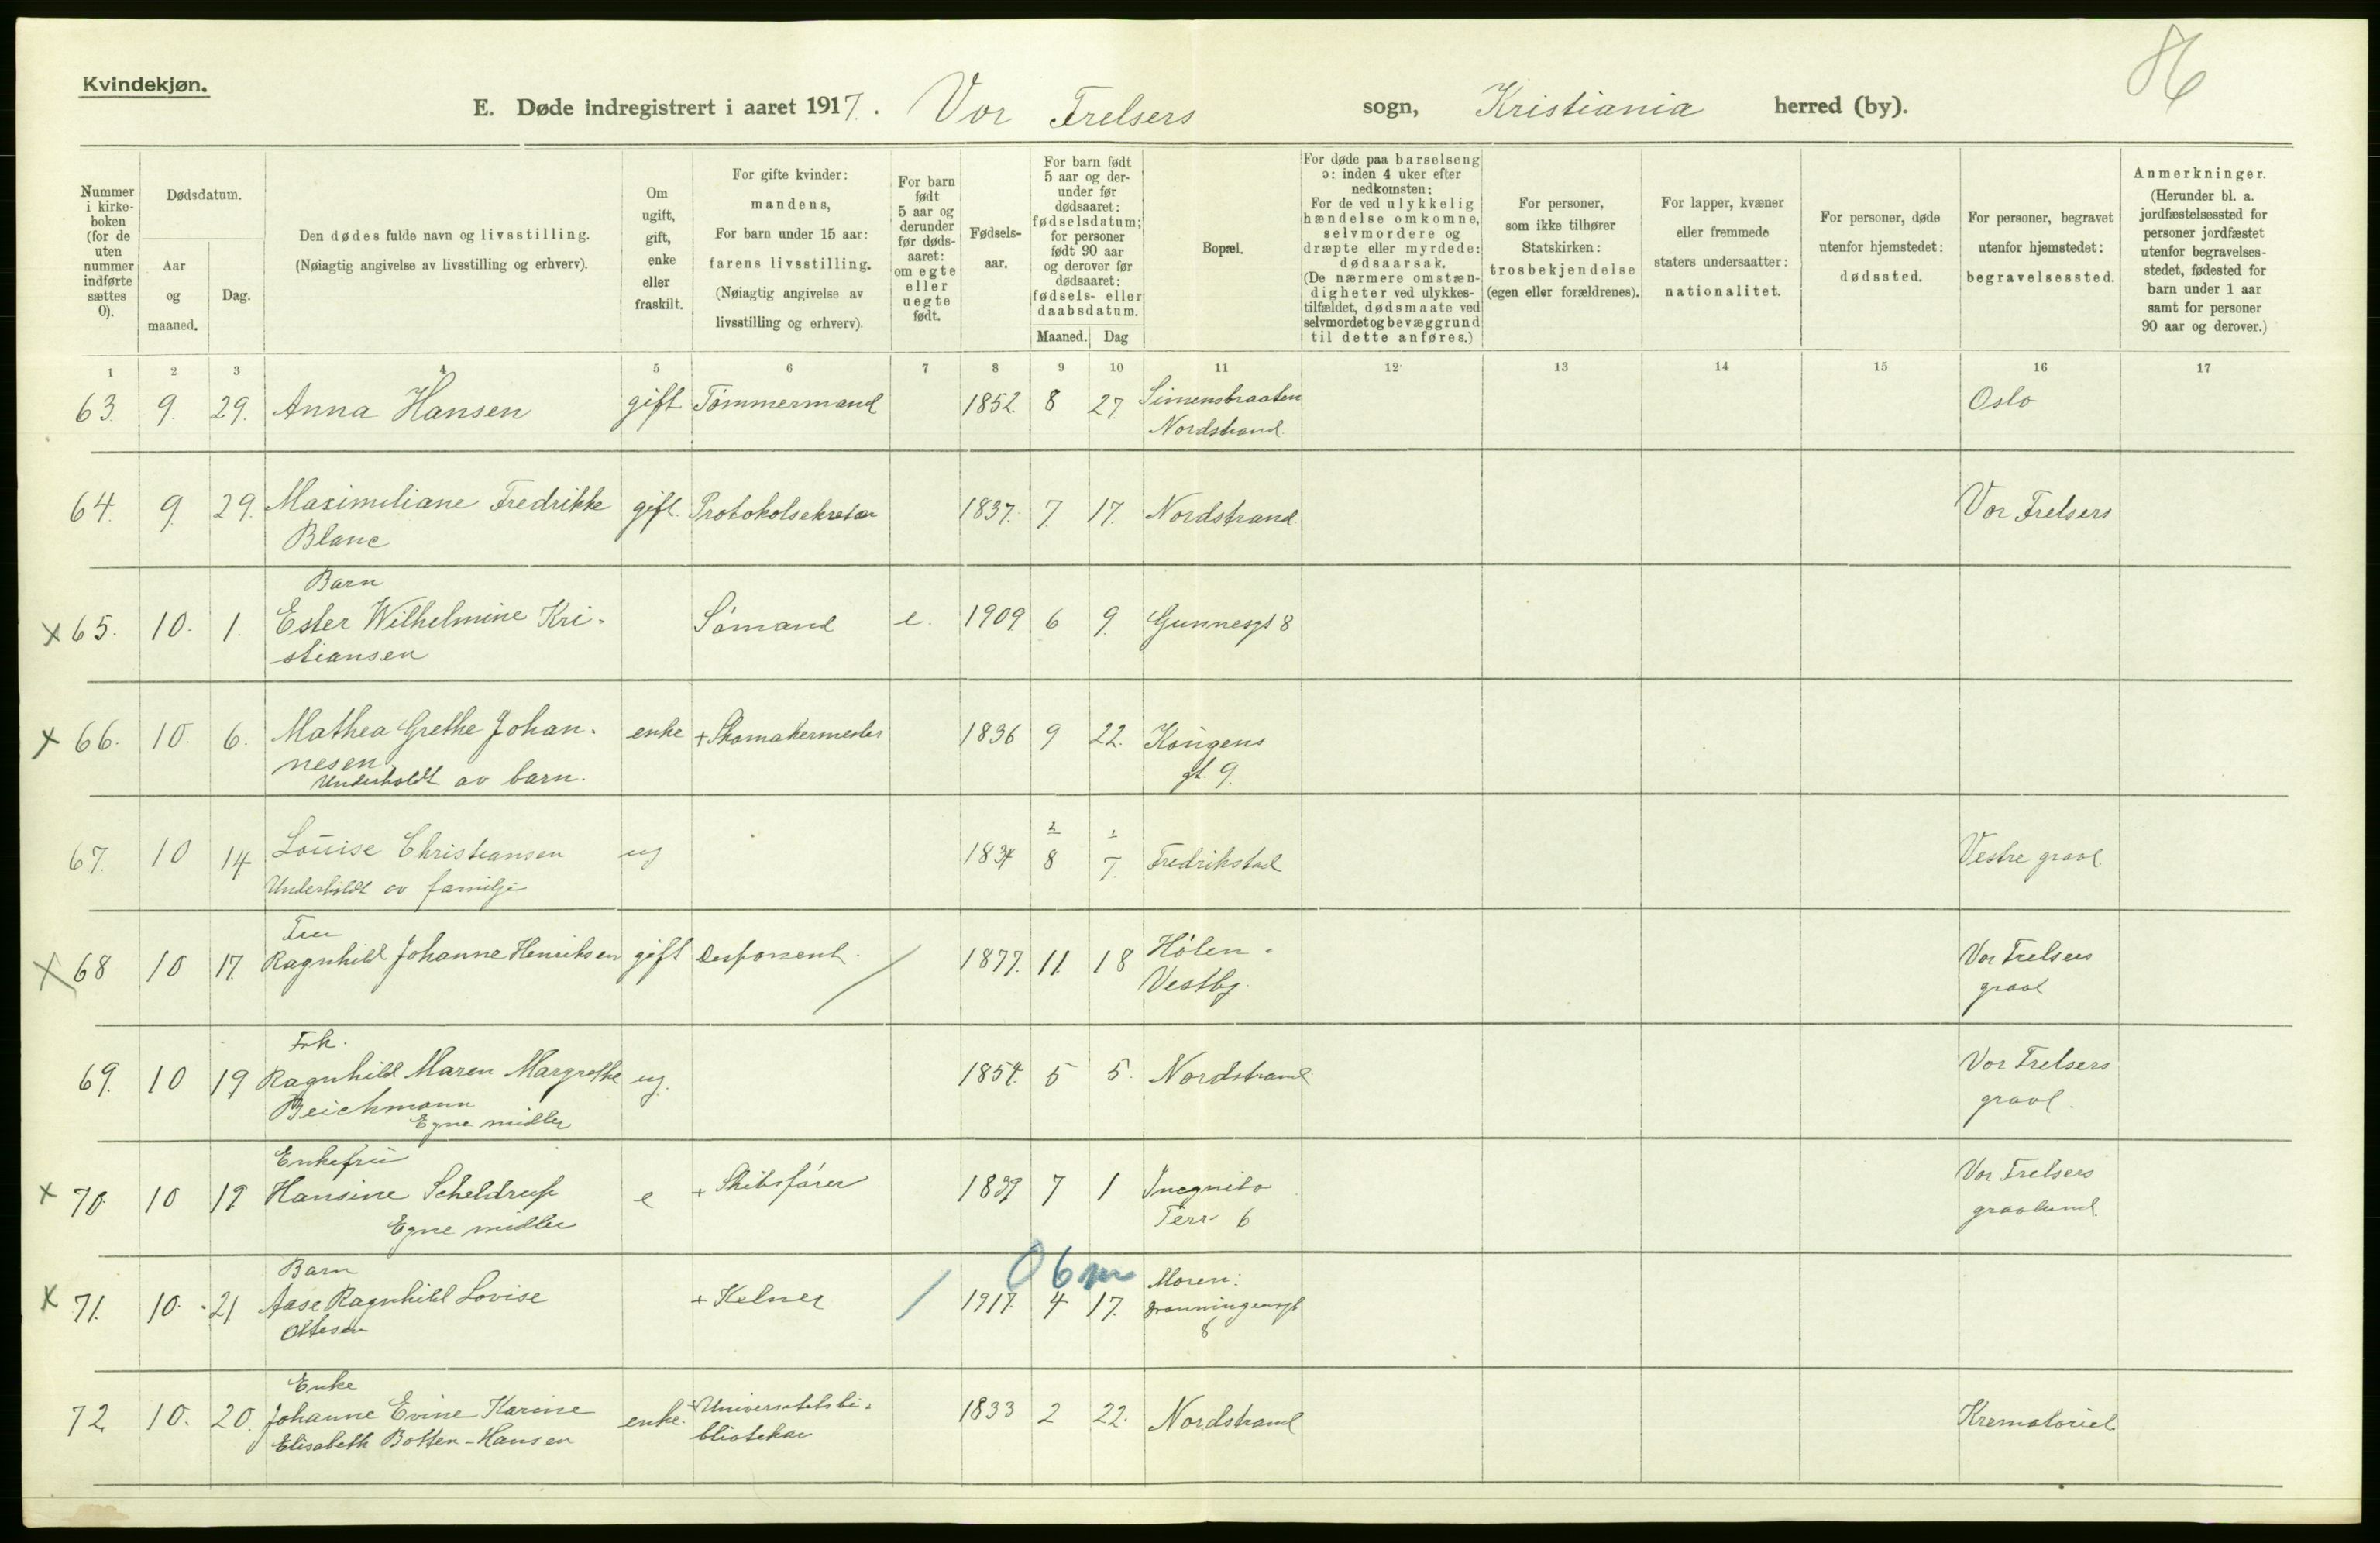 86
Kvindekjøn.
E. Døde indregistrert i aaret 1917. Vor Frelsers sogn, Kristiania herred (by).
Nummer i kirkeboken (for de uten nummer indførte sættes 0).
Dødsdatum.
Aar og maaned.
Dag.
Den dødes fulde navn og livsstilling.
(Nøiagtig angivelse av livsstilling og erhverv).
Om ugift, gift, enke eller fraskilt.
For gifte kvinder: mandens,
For barn under 15 aar: farens livsstilling.
(Nøiagtig angivelse av livsstilling og erhverv).
For barn født 5 aar og derunder før dødsaaret: om egte eller uegte født.
Fødselsaar.
For barn født 5 aar og derunder før dødsaaret: fødselsdatum; for personer født 90 aar og derover før dødsaaret: fødsels- eller daabsdatum.
Maaned. Dag
Bopæl.
For døde paa barselseng ɔ: inden 4 uker efter nedkomsten:
For de ved ulykkelig hændelse omkomne, selvmordere og dræpte eller myrdede: dødsaarsak.
(De nærmere omstændigheter ved ulykkestilfældet, dødsmaate ved selvmordet og bevæggrund til dette anføres.)
For personer, som ikke tilhører Statskirken: trosbekjendelse (egen eller forældrenes).
For lapper, kvæner eller fremmede staters undersaatter: nationalitet.
For personer, døde utenfor hjemstedet: dødssted.
For personer, begravet utenfor hjemstedet: begravelsessted.
Anmerkninger.
(Herunder bl. a. jordfæstelsessted for personer jordfæstet utenfor begravelsesstedet, fødested for barn under 1 aar samt for personer 90 aar og derover.)
1 2 3 4 5 6 7 8 9 10 11 12 13 14 15 16 17
63. 9. 29. Anna Hansen gift Tømmermand 1852. 8 27. Simensbraaten Oslo
Nordstrand.
64. 9. 29. Maximiliane Fredrikke gift. Protokolsekretær 1837. 7. 17. Nordstrand Vor Frelsers
Blanc
Barn
x 65. 10. 1. Ester Wilhelmine Kri- Sømand e. 1909 6 9. Gunnesgt 8
stiansen
x 66. 10. 6. Mathea Grethe Johan- enke + Skomakermester 1836 9 22. Kongens
nesen. gt. 9.
Underholdt av barn.
2 1
67. 10 14 Louise Christiansen ug 1834 8 7. Fredrikstad Vestre gravl.
Underholdt av familje
Fru
x 68 10 17. Ragnhild Johanne Henriksen gift Disponent. 1877. 11. 18 Hølen - Vor Frelsers
Vestby. gravl
Frk.
69. 10 19 Ragnhild Maren Margrethe ug. 1854. 5 5. Nordstrand Vor Frelsers
Beichmann gravl.
Egne midler
Enkefru
x 70. 10 19. Hansine Scheldrup e + Skibsfører 1839 7 1 Incognito Vor Frelsers
Egne midler Terr 6 gravlund.
Barn 06m Moren:
x 71. 10. 21 Aase Ragnhild Lovise + Kelner 1917. 4 17. Dronningensgt
Ottesen 8
Enke
72. 10. 20. Johanne Evine Karine enke. + Universitetsbi- 1833 2 22. Nordstrand Krematoriet.
Elisabeth Botten-Hansen bliotekar